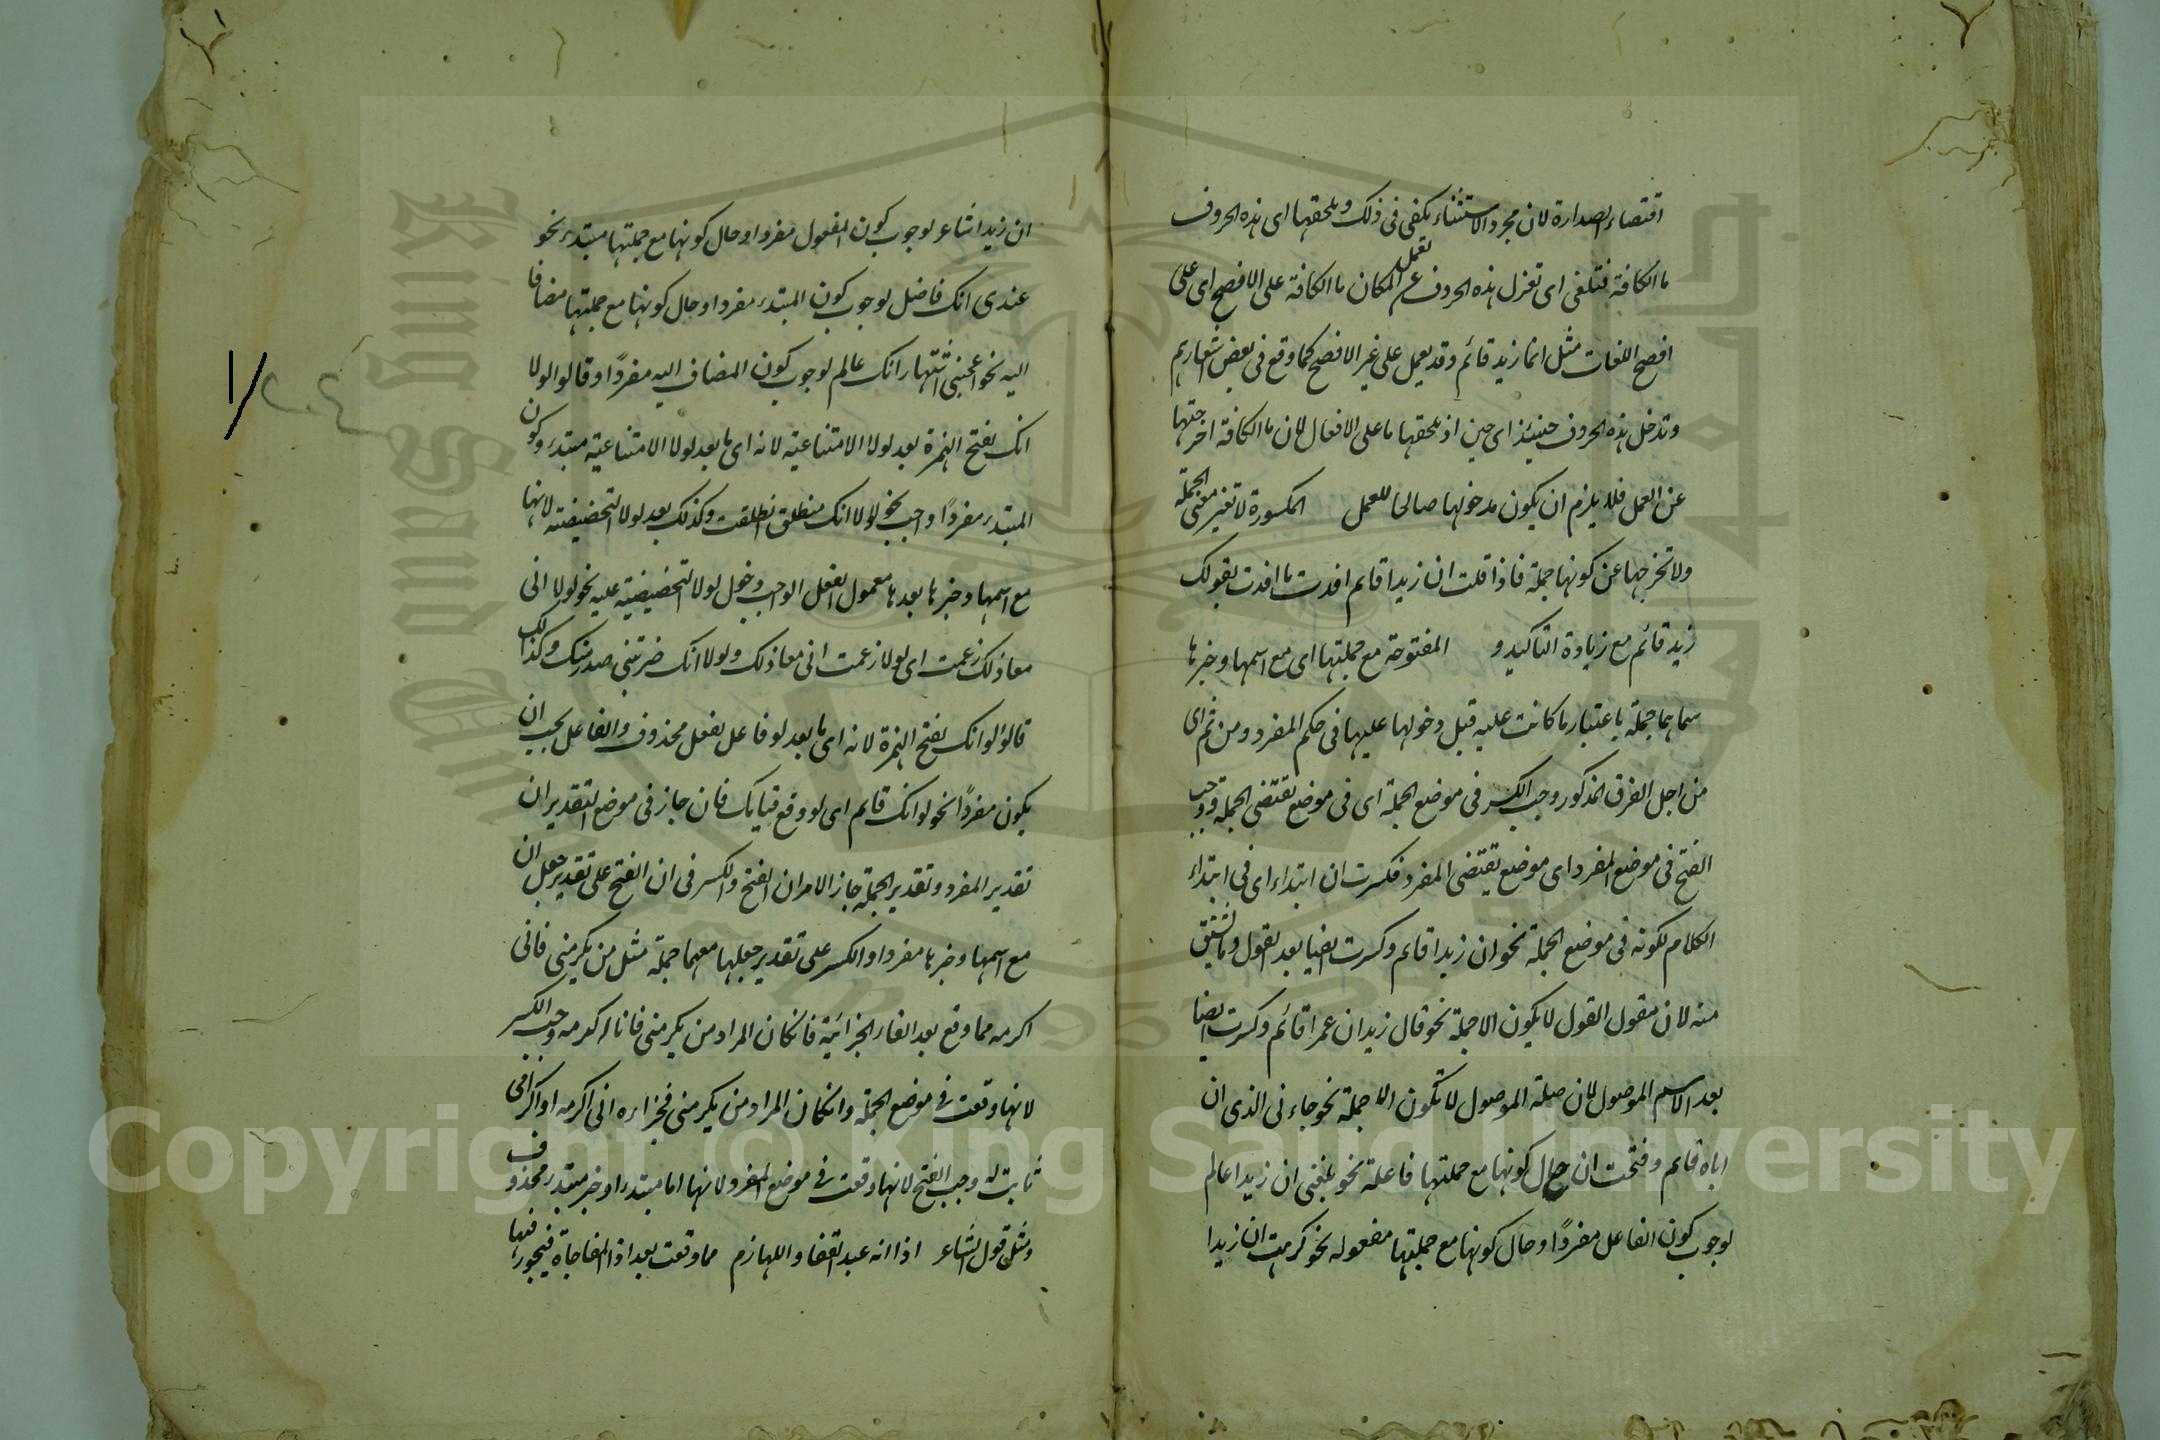 اقتضاء الصدارة لان مجرد الاستثناء يكفى فى ذلك ويلحقها اى هذه الحروف
ما الكافة فتلغى اى تعزل هذه الحروف عن العمل لمكان ما الكافة على الافصح اى على
افصح اللغات مثل انما زيد قائم وقد يعمل على غير الافصح كما وقع فى بعض اشعارهم
وتدخل هذه الحروف حينئذ اى حين اذ يلحقها ما على الافعال لان ما الكافة اخرجتها
عن العمل فلا يلزم ان يكون مدخولها صالحا للعمل المكسورة لا تغير معنى الجملة
ولا تخرجها عن كونها جملة فاذا قلت ان زيدا قائم افدت ما افدت بقولك
زيد قائم مع زيادة التاكيد و المفتوحة مع جملتها اى مع اسمها وخبرها
سماهما جملة باعتبار ما كانت عليه قبل دخولها عليها فى حكم المفرد ومن ثم اى
من اجل الفرق المذكور وجب الكسر فى موضع الجملة اى فى موضع تقتضى الجملة ووجب
الفتح فى موضع المفرد اى موضع يقتضى المفرد فكسرت ان ابتداء اى فى ابتداء
الكلام لكونه فى موضع الجملة نحو ان زيدا قائم وكسرت ايضا بعد القول وما يشتق
منه لان مقول القول لا يكون الا جملة نحو قال زيد ان عمرا قائم وكسرت ايضا
بعد الاسم الموصول لان صلة الموصول لا تكون الا جملة نحو جاءنى الذى ان
اباه قائم وفتحت ان حال كونها مع جملتها فاعلة نحو بلغنى ان زيدا عالم
لوجوب كون الفاعل مفردًا وحال كونها مع جملتها مفعوله نحو كرهت ان زيدا
ان زيدا شاعر لوجوب كون المفعول مفردا وحال كونها مع جملتها مبتدء نحو
عندى انك فاضل لوجوب كون المبتدء مفردا وحال كونها مع جملتها مضافا
اليه نحو اعجبنى اشتهار انك عالم لوجوب كون المضاف اليه مفردًا وقالوا لولا
انك بفتح الهمزة بعد لولا الامتناعية لانه اى ما بعد لولا الامتناعية مبتدء وكون
المبتدء مفردًا واجب نحو لولا انك منطلق انطلقت وكذلك بعد لولا التحضيضية لانها
مع اسمها وخبرها بعدها معمول الفعل الواجب دخول لولا التحضيضية عليه نحو لولا انى
معاذ لك زعمت اى لولا زعمت انى معاذ لك ولولا انك ضربتنى صدر منك وكذلك
قالوا لو انك بفتح الهمزة لانه اى ما بعد لو فاعل لفعل محذوف والفاعل يجب ان
يكون مفردًا نحو لو انك قائم اى لو وقع قيامك فان جاز فى موضع التقديران
تقدير المفرد وتقدير الجملة جاز الامران الفتح والكسر فى ان الفتح على تقدير جعل ان
مع اسمها وخبرها مفردا والكسر على تقدير جعلها معهما جملة مثل من يكرمنى فانى
اكرمه مما وقع بعد الفاء الجزائية فانكان المراد من يكرمنى فانا اكرمه وجب الكسر
لانها وقعت فى موضع الجملة وانكان المراد من يكرمنى فجزاءه انى اكرمه او اكرامى
ثابت له وجب الفتح لانها وقعت فى موضع المفرد لانها اما مبتدء او خبر مبتدء محذوف
ومثل قول الشاعر اذا انه عبد القفا واللهازم مما وقعت بعد اذا المفاجاة فيجوز فيها
Copyright © King Saud University